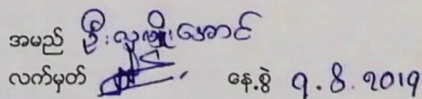 အမည် ဦးလှမျိုးအောင်
လက်မှတ် နေ့စွဲ ၇.၆.၂၀၁၇